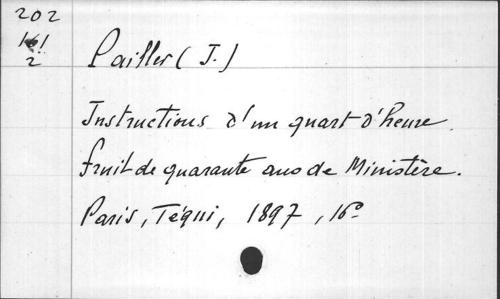 202
161
2
Pailler (J.)
Instructions d'un quart d'heure.
fruit de quarante ans de Ministère.
Paris, Téqui, 1897, 16°